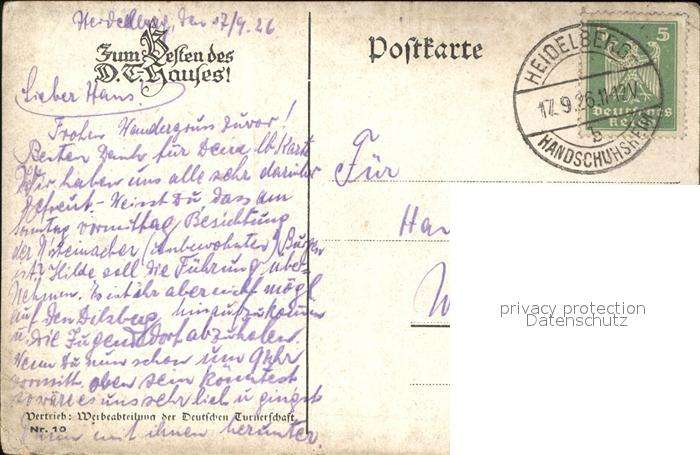 Heidelberg, den 17/9. 26
Zum Besten des
D. T. Hauses!
Postkarte
HEIDELBERG
17.9.26.11-12V.
b
HANDSCHUHSHEIM
5
Deutsches
Reich
Lieber Hans.
Frohen Wandergruss zuvor!
Besten Dank für Deine lb. Karte
Wir haben uns alle sehr darüber
gefreut. - Weisst Du, dass am
Sonntag vormittag Besichtung
der Steinacher (unbewohnter)
ist? Hilde soll die Führung über-
nehmen. Es ist ihr aber nicht mögl
auf den Dilsberg
u. die Jugend dort abzuholen
Wenn Du nun schon um 9 Uhr
vormitt. oben sein könntest
so wäre es uns sehr lieb u gingst
dann mit ihnen herunter.
Für
Han
W
privacy protection
Datenschutz
Vertrieb: Werbeabteilung der Deutschen Turnerschaft
Nr. 10